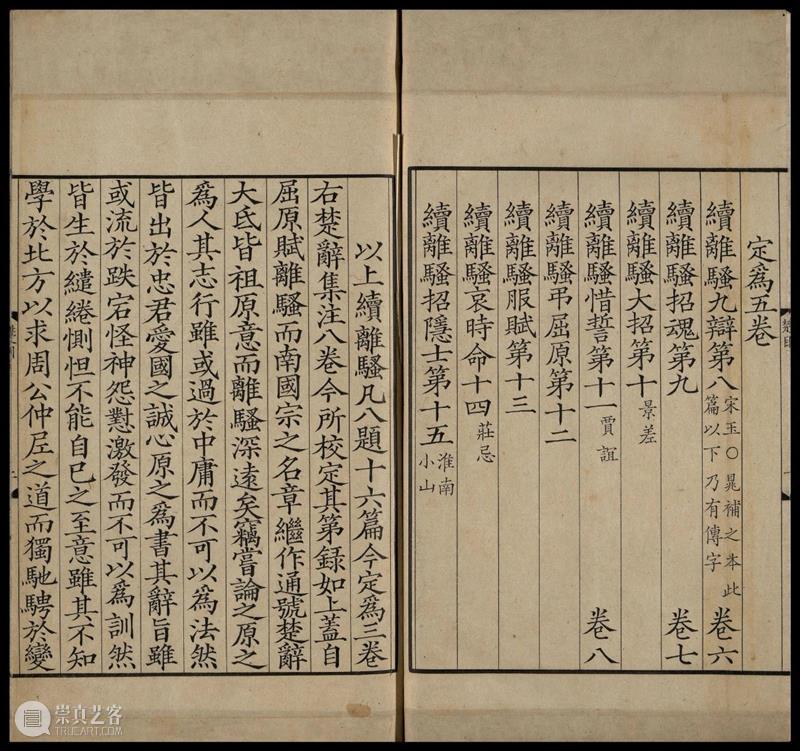 定爲五卷
續離騷九辯第八 宋玉○晁補之本此篇以下乃有傳字 卷六
續離騷招魂第九 卷七
續離騷大招第十 景差
續離騷惜誓第十一 賈誼 卷八
續離騷弔屈原第十二
續離騷服賦第十三
續離騷哀時命十四 莊忌
續離騷招隱士第十五 淮南小山
以上續離騷凡八題十六篇今定爲三卷
右楚辭集注八卷今所校定其第録如上蓋自
屈原賦離騷而南國宗之名章繼作通號楚辭
大氐皆祖原意而離騷深遠矣竊嘗論之原之
爲人其志行雖或過於中庸而不可以爲法然
皆出於忠君愛國之誠心原之爲書其辭旨雖
或流於跌宕怪神怨懟激發而不可以爲訓然
皆生於繾綣惻怛不能自已之至意雖其不知
學於北方以求周公仲尼之道而獨馳騁於變
崇真艺客
TRUEART.COM